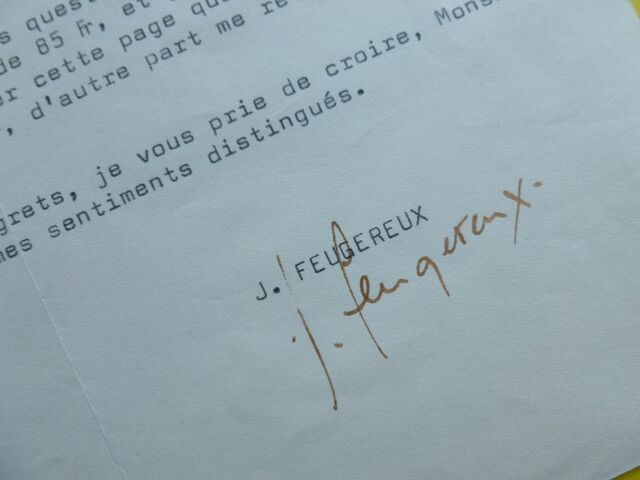 s quest
de 85 Fr, et
er cette page que
, d'autre part me re
grets, je vous prie de croire, Mons
mes sentiments distingués.
J. FEUGEREUX
J. Feugereux.